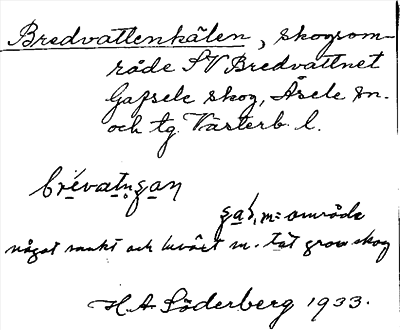 Bredvattenkälen, skogsom-
råde SV Bredvattnet
Gafsele skog, Åsele sn.
och tg. Västerb. l.
brévatn̥gan
gaś, m = område
något sankt och tät granskog
H. A. Söderberg 1933.